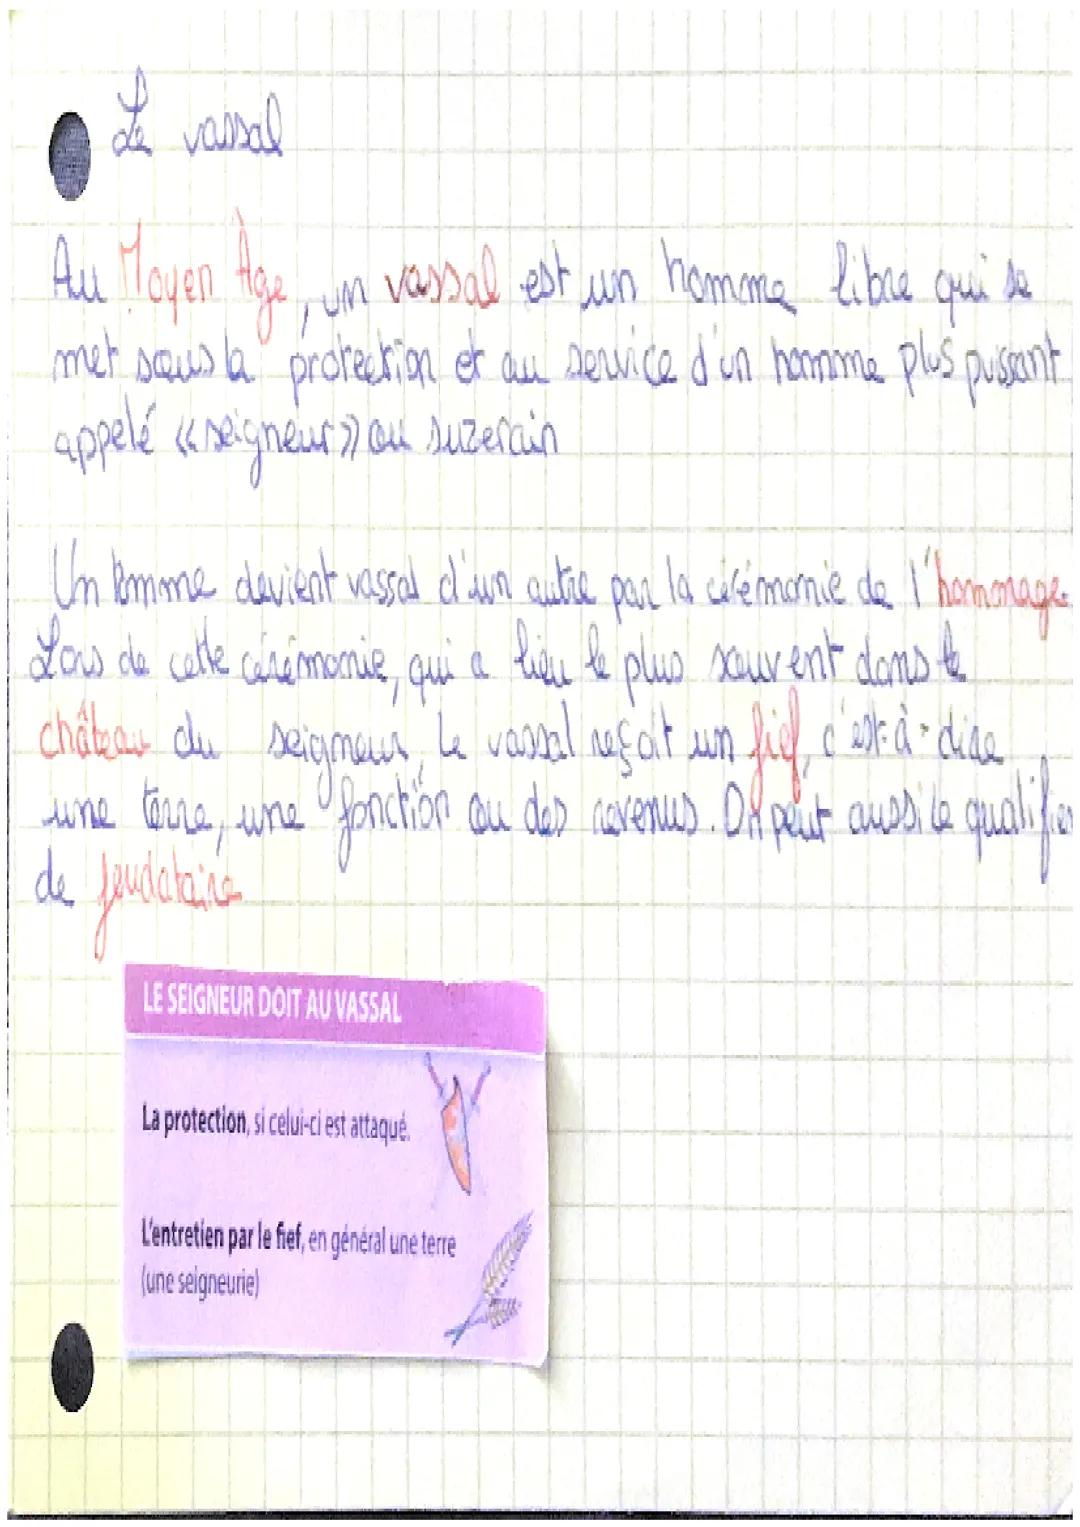 Le vassal
Au Moyen Âge, un vassal est un homme libre qui se
met sous la protection et au service d'un homme plus puissant
appelé «seigneur» ou suzerain
Un homme devient vassal d'un autre par la cérémonie de l'hommage.
Lors de cette cérémonie, qui a lieu le plus souvent dans le
château du seigneur, le vassal reçoit un fief, c'est-à-dire
une terre, une fonction ou des revenus. On peut aussi le qualifier
de feudataire
LE SEIGNEUR DOIT AU VASSAL
La protection, si celui-ci est attaqué.
L'entretien par le fief, en général une terre
(une seigneurie)